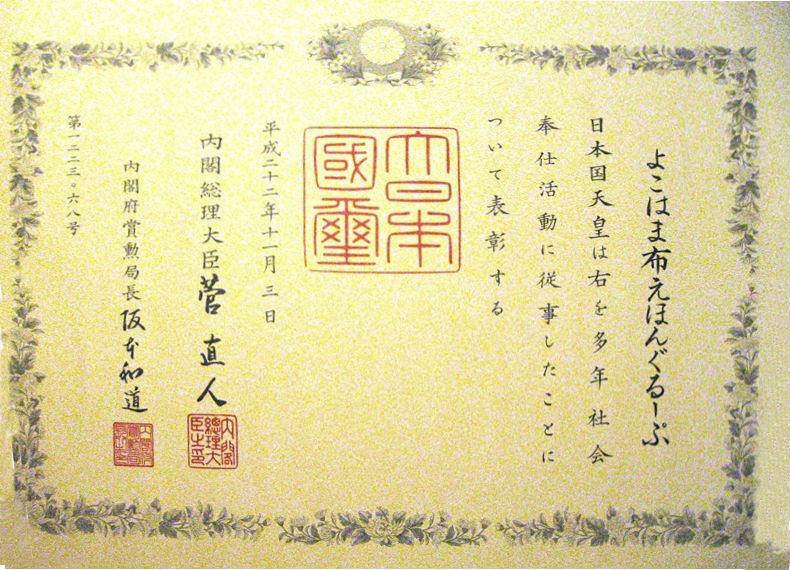 よこはま布えほんぐるーぷ
日本国天皇は右を多年社会
奉仕活動に従事したことに
ついて表彰する
大日本
國璽
平成二十二年十一月三日
内閣総理大臣菅直人
内閣
總理大
臣之印
内閣府賞勲局長阪本和道
第一二三〇六八号